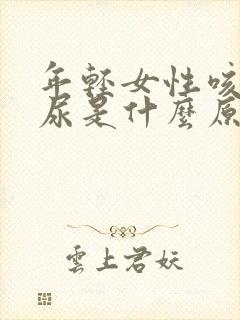 年輕女性咳
尿是什麼原
雲上君妖